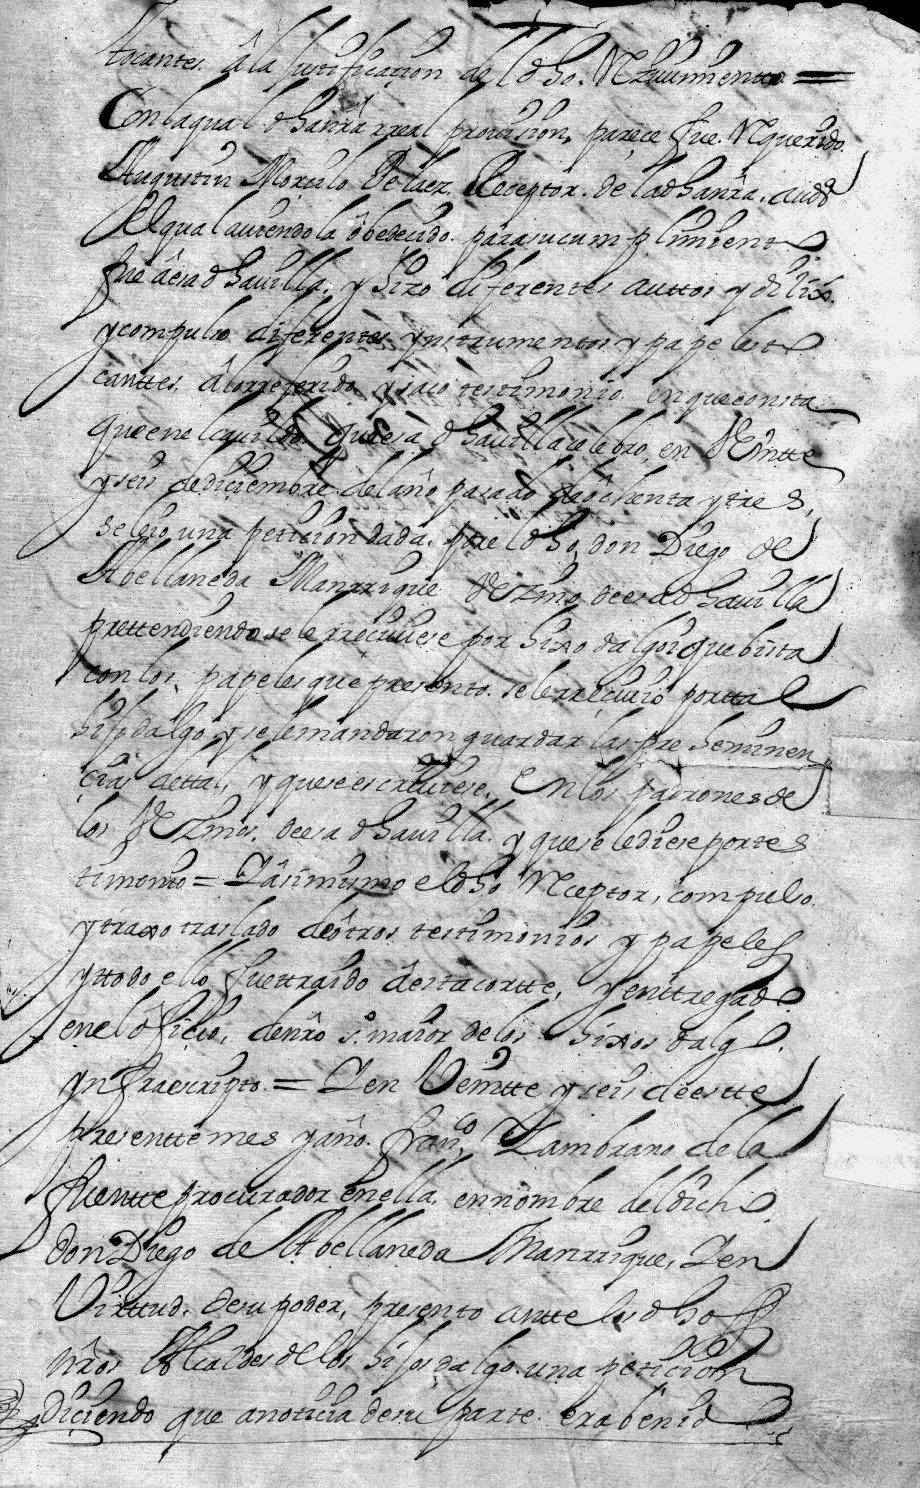 tocantes. â la justificaçion del dho. Rezivimiento =
Con la qual dha nrâ rreal provission, pareçe fue. Requerido.
Augustin Morçilo Pelaez Receptor. de la dha nrâ. audª
El qual aviendola ôbedeçido. para su cumplimiento
fue â esa dha villa. y hizo diferentes auttos y dilixªs
y compulso diferentes ynstrumentos y papeles to
canttes. â lo rreferido y saco testimonio en que consta
que en el cavildo que esa dha villa celebro, en Veintte
y seis de diciembre del año pasado de ôchenta y tres,
se leio una peticion dada. por el dho, don Diego de
Abellaneda Manrrique Vezino de esa dha villa
prettendiendo se le rrecivuiese por hixo dalgo i que bista
con los papeles que presento. se le rreçivio por ttal
hijodalgo y se le mandaron guardar las preheminen
çias de ttal, y que se escriviese, En los padrones de
los Vezinos, de esa dha villa. y que se le diese por tes
timonio = Y âsimismo el dho Receptor, compulso.
y traxo traslado de ôtros testimonios y papeles
y ttodo ello fue ttraido â esta cortte, y entregado
en el ôficio, de nrô sº maior de los hixos dalgo.
ynfraescripto = Y en Veintte y seis de estte
presentte mes y año. Franco Zambrano de la
fuentte procurador en ella. en nombre del dicho
don Diego de Abellaneda Manrrique, Y en
Virttud. de su poder, presento antte los dhos
nrôs Alcaldes de los hijosdalgo una peticion
Diciendo que a noticia de su parte. era benido